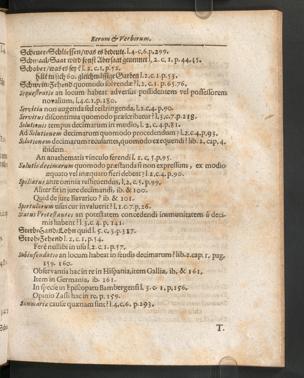 Rerum & Verborum.
Scheuer-Schliessen/ was es bedeute. l.4.c.6.p.299.
Schmaal-Saat wird sonst Aberfaat genennet l. 2. c. 1. p. 44. 45.
Schober/ was es sey? l. 2. c. 1. p. 52.
hält in sich 60. gleichmässige Garben l. 2. c. 1. p. 53.
Zehend quomodo solvendæ? l. 2, c. 1. p. 65. 76.
Sequestratio an locum habeat adversus possidentem vel possessorem
novalium, l.4.c.1.p.180.
Servitia non augenda sed restringenda, l.2.c.4.p.90.
Servitus discontinua quomodo præscribatur? l.3.c.7.p.218.
Solutionis tempus decimarum in medio, l. 2. c.4.p.81.
Ad Solutionem decimarum quomodo procedendum? l.2.c.4.p.93.
Solutionem decimarum recusantes, quomodo exequendi? lib. 2. cap, 4.
ibidem.
An anathematis vinculo feriendi l. 2. c, 5. p.95.
Solutio decimarum quomodo præstanda si non expressum, ex modio
æquato vel inæquato fieri debeat? l.2.c.4.p.90.
Spoliatus ante omnia restituendus, l,2, c.5. p.99,
Aliter fit in jure decimandi, ib. & 100.
Quid de jure Bavarico? ib. & 101.
Sportularum usus cur invaluerit? l.2.c.7.p.26.
Status Protestantes an potestatem concedendi immunitatem à deci-
mis habeat? l.3.c.4. p. 141.
Sterb-Handlohn quid l. 5. c. 3.p.327.
Stroh-Zehend l. 2, c. 1. p. 54.
Ferè nullibi in usu l. 2. c. 1. p. 57.
Subinfeudatio an locum habeat in feudis decimarum? lib. 2. cap. 1, pag.
159. 160.
Observantia hac in re in Hispania, item Gallia, ib, & 161,
Item in Germania, ib. 161.
In specie in Episcopatu Bambergensi l. 3. c. 1, p, 156.
Opinio Zasii hac in re. p. 159.
Summariæ causæ quænam sint? l.4.c.6. p.293.
T.